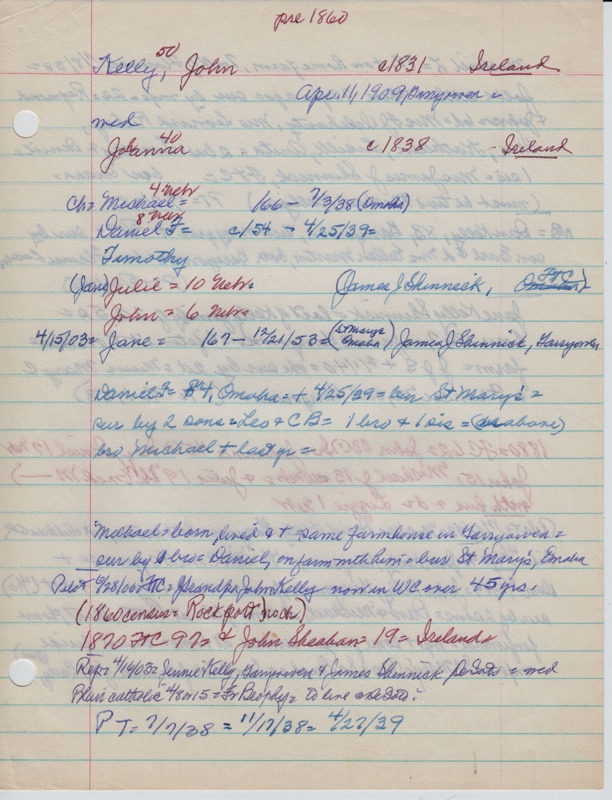 pre 1860
Kelly, 50 John c1831 Ireland
Apr. 11, 1909, Garryowen =
med
Johanna 40 c1838 - Ireland
ch = Michael = 4 Nebr /66 - 7/3/38 (Omaha)
Daniel F = 8 c/54 - 4/25/39 =
Timothy
(Jane) Julie = 10 Nebr. (James J Shinnick, FTC)
John = 6 Nebr.
4/15/03 = Jane = 167 - 12/21/53 = (St Marys Omaha) James J Shinnick, Garryowen
Daniel F = 84, Omaha = + 4/25/39 = bur St Mary's =
sur by 2 sons = Leo & CB = 1 bro & 1 sis = (above)
bro Michael + last yr =
Michael = born, lived & + same farmhouse in Garryowen =
sur by bro = Daniel, on farm with him = bur St Mary's, Omaha
Pilot 6/28/60 = FTC = Grandpa John Kelly now in WC over 45 yrs.
(1860 census = Rockport rocks)
1870 FTC 97 = & John Sheahan = 19 = Ireland
Rep = 4/16/03 = Jennie Kelly, Garryowen & James Shinnick DeSoto = med
Plain catholic 4/8 = Fr Brophy = to live DeSoto.
P T = 7/7/38 = 11/17/38 = 4/27/39